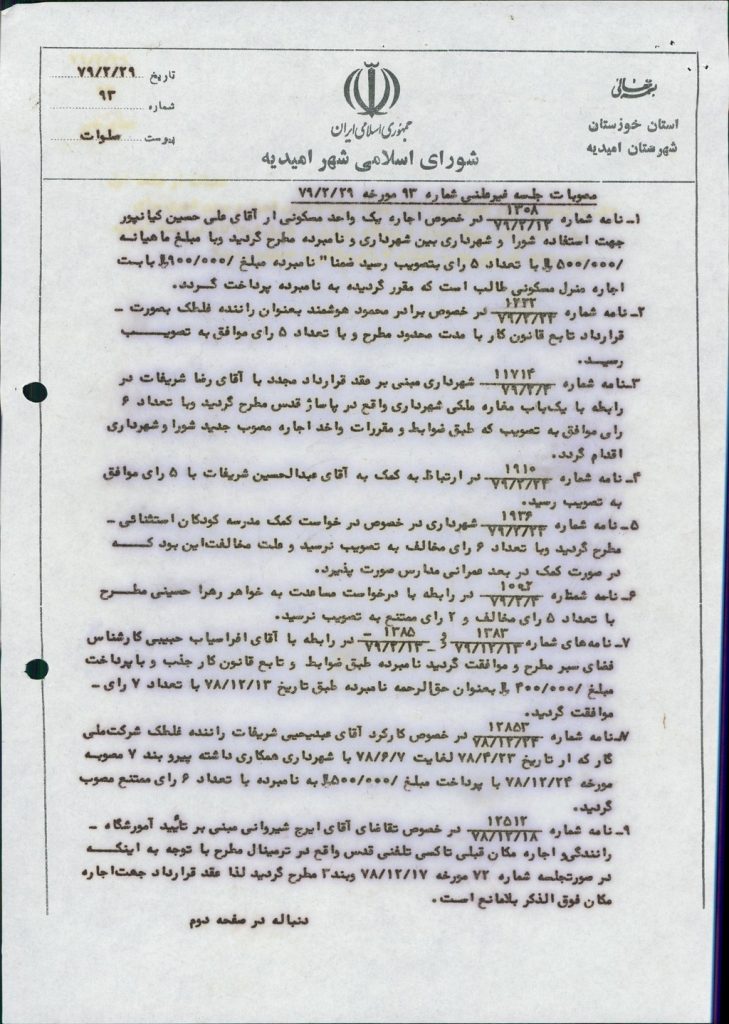 بسمه تعالی
استان خوزستان
شهرستان امیدیه
جمهوری اسلامی ایران
شورای اسلامی شهر امیدیه
تاریخ ۷۹/۲/۲۹
شماره ۹۳
پیوست صلوات
مصوبات جلسه غیرعلنی شماره ۹۳ مورخه ۷۹/۲/۲۹
۱ـ نامه شماره ۱۳۰۸ / ۷۹/۲/۱۲ در خصوص اجاره یک واحد مسکونی از آقای علی حسین کیانپور
جهت استفاده شورا و شهرداری بین شهرداری و نامبرده مطرح گردید وبا مبلغ ماهیانه
/۵۰۰/۰۰۰ ریال با تعداد ۵ رای بتصویب رسید ضمنا" نامبرده مبلغ /۹۰۰/۰۰۰ ریال بابت
اجاره منزل مسکونی طالب است که مقرر گردیده به نامبرده پرداخت گردد.
۲ـ نامه شماره ۷۹/۲/۲۴ در خصوص برادر محمود هوشمند بعنوان راننده غلطک بصورت ـ
قرارداد تابع قانون کار با مدت محدود مطرح و با تعداد ۵ رای موافق به تصویب
رسید.
۳ـ نامه شماره ۱۱۷۱۴ / ۷۹/۲/۴ شهرداری مبنی بر عقد قرارداد مجدد با آقای رضا شریفات در
رابطه با یک‌باب مغازه ملکی شهرداری واقع در پاساژ قدس مطرح گردید وبا تعداد ۶
رای موافق به تصویب که طبق ضوابط و مقررات واخذ اجاره مصوب جدید شورا وشهرداری
اقدام گردد.
۴ـ نامه شماره ۱۹۱۰ / ۷۹/۲/۲۴ در ارتباط به کمک به آقای عبدالحسین شریفات با ۵ رای موافق
به تصویب رسید.
۵ـ نامه شماره ۱۹۳۶ / ۷۹/۲/۲۴ شهرداری در خصوص در خواست کمک مدرسه کودکان استثنائی ـ
مطرح گردید وبا تعداد ۶ رای مخالف به تصویب نرسید و علت مخالفت‌این بود که
در صورت کمک در بعد عمرانی مدارس صورت پذیرد.
۶ـ نامه شماره ۱۰۹۲ / ۷۹/۲/۴ در رابطه با درخواست مساعدت به خواهر زهرا حسینی مطرح
با تعداد ۵ رای مخالف و ۲ رای ممتنع به تصویب نرسید.
۷ـ نامه‌های شماره ۱۳۸۳ / ۷۹/۱۲/۱۳ و ۱۳۸۵ / ۷۹/۲/۱۳ ـ در رابطه با آقای افراسیاب حبیبی کارشناس
فضای سبز مطرح و موافقت گردید نامبرده طبق ضوابط و تابع قانون کار جذب و با پرداخت
مبلغ /۴۰۰/۰۰۰ ریال بعنوان حق‌الزحمه نامبرده طبق تاریخ ۷۸/۱۲/۱۳ با تعداد ۷ رای ـ
موافقت گردید.
۷ـ نامه شماره ۱۲۸۵۳ / ۷۸/۱۲/۲۴ در خصوص کارکرد آقای عیدیحیی شریفات راننده غلطک شرکت‌ملی
گاز که از تاریخ ۷۸/۴/۲۳ لغایت ۷۸/۶/۷ با شهرداری همکاری داشته پیرو بند ۷ مصوبه
مورخه ۷۸/۱۲/۲۴ با پرداخت مبلغ /۵۰۰/۰۰۰ ریال به نامبرده با تعداد ۶ رای ممتنع مصوب
گردید.
۹ـ نامه شماره ۱۲۵۱۲ / ۷۸/۱۲/۱۸ در خصوص تقاضای آقای ایرج شیروانی مبنی بر تأیید آموزشگاه ـ
رانندگی‌و اجاره مکان قبلی تاکسی تلفنی قدس واقع در ترمینال مطرح با توجه به اینکه
در صورتجلسه شماره ۷۲ مورخه ۷۸/۱۲/۱۷ وبند۳ مطرح گردید لذا عقد قرارداد جهت‌اجاره
مکان فوق الذکر بلامانع است.
دنباله در صفحه دوم